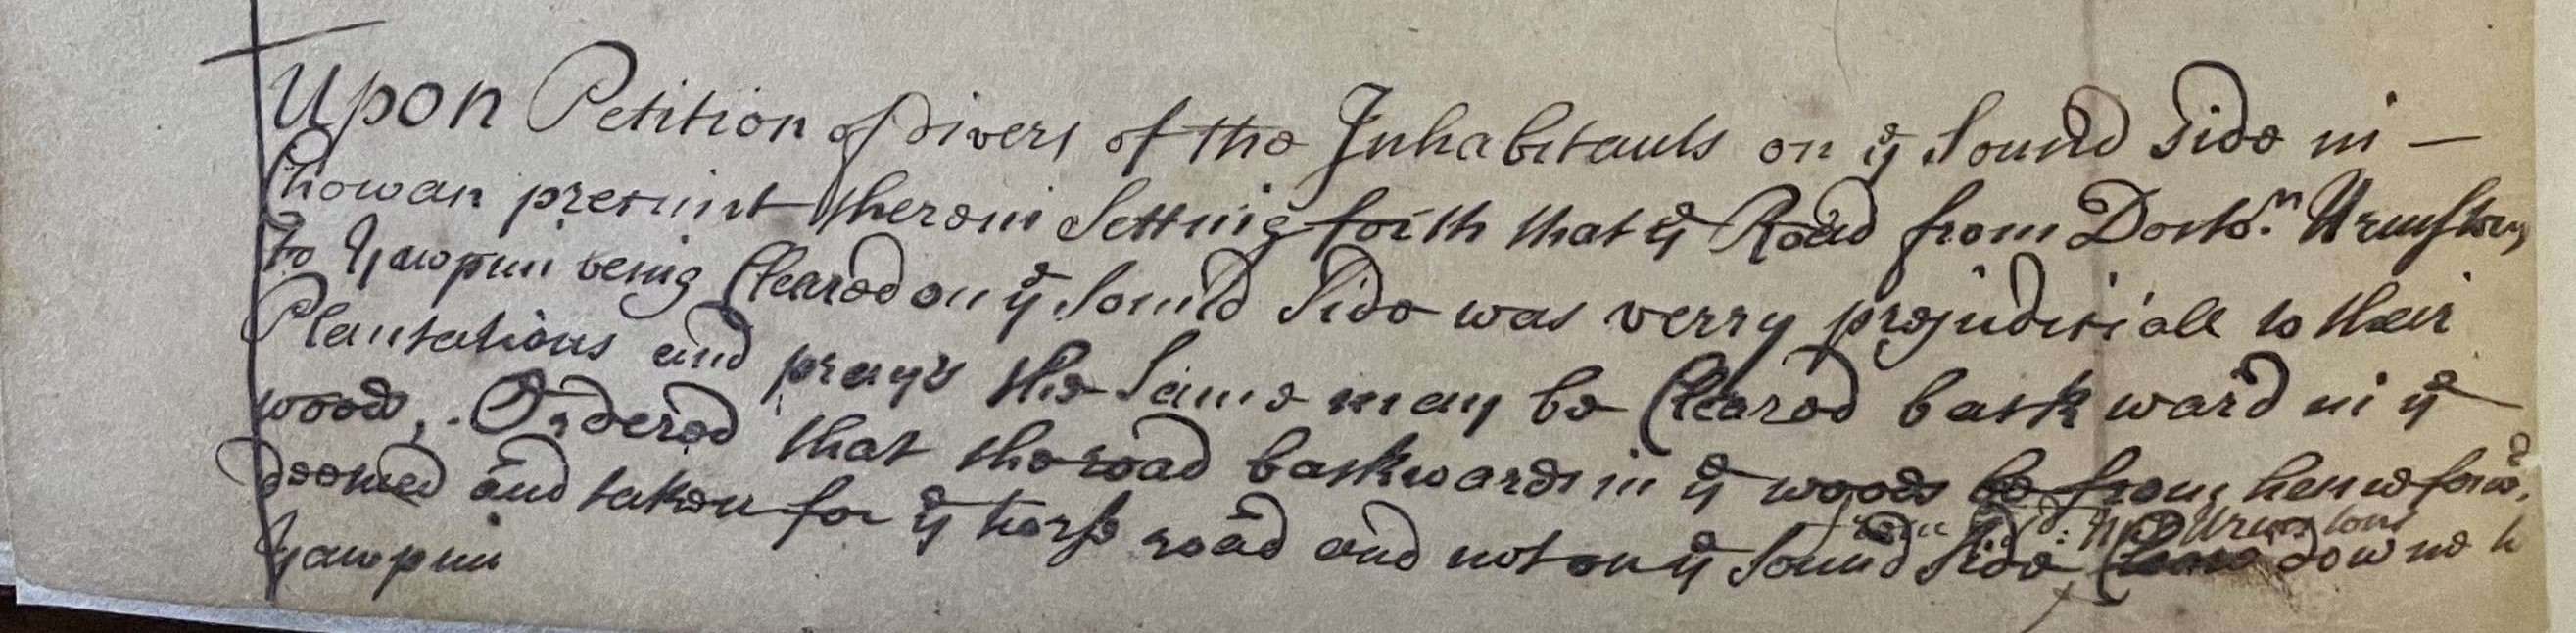 Upon Petition of Divers of the Inhabitants on ye Sound Side in —
Chowan precinct therein Setting forth that ye Road from Doctor. Urmstons
To Yawpim being Cleared on ye Sound Side was verry prejudiciall to their
Plantations and prayes the Same may be Cleared back ward in ye
woods,. Ordered that the road backwards in ye woods be from henceforwd.
Deemed and taken for ye horse road and not on ye Sound Side downe to
from Urmstons
Yawpim